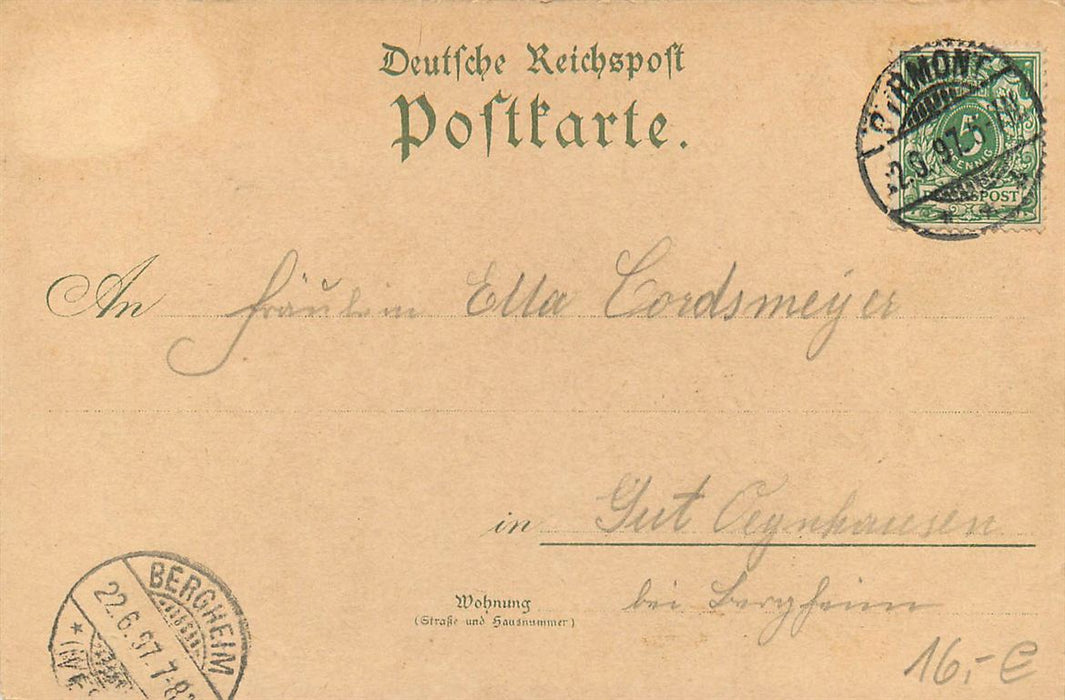 Deutsche Reichspost
Postkarte.
PYRMONT
5
PFENNIG
REICHSPOST
An Fräulein Ella Cordsmeyer
in Gut Oeynhausen
Wohnung
(Straße und Hausnummer)
bei Bergheim
BERGHEIM
22.6.97. 7-8
16,- €